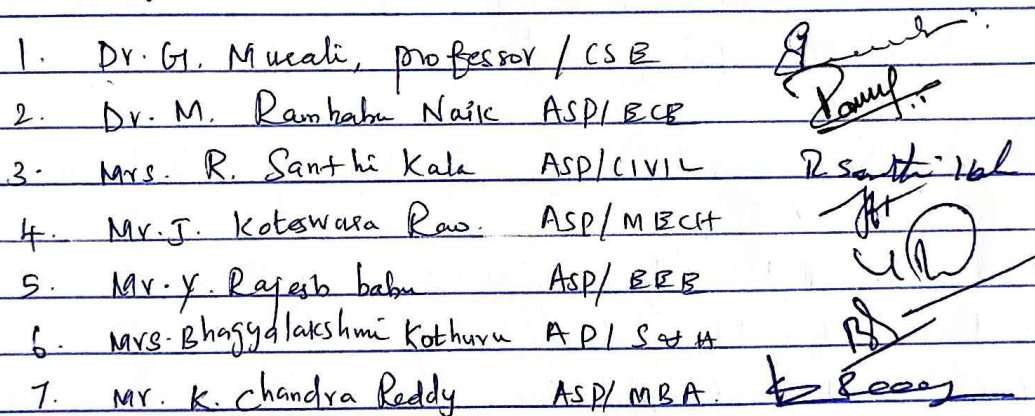 1. Dr. G. Murali, professor / CSE
2. Dr. M. Rambabu Naik ASP/ ECE
3. Mrs. R. Santhi Kala ASP/CIVIL R Santhi Kal
4. Mr. J. Koteswara Rao. ASP/ MECH
5. Mr. Y. Rajesh babu ASP/ EEE
6. Mrs. Bhagyalakshmi Kothuru AP/ S & H
7. Mr. K. Chandra Reddy ASP/ MBA.